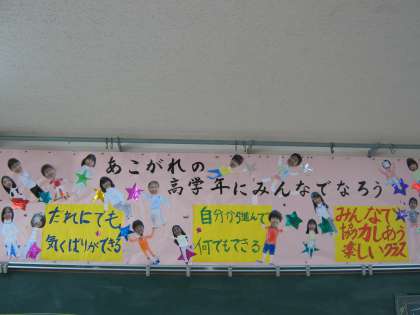 あこがれの
高学年にみんなでなろう
だれにでも
気くばりができる
自分から進んで
何でもできる
みんなで
協力しあう
楽しいクラス